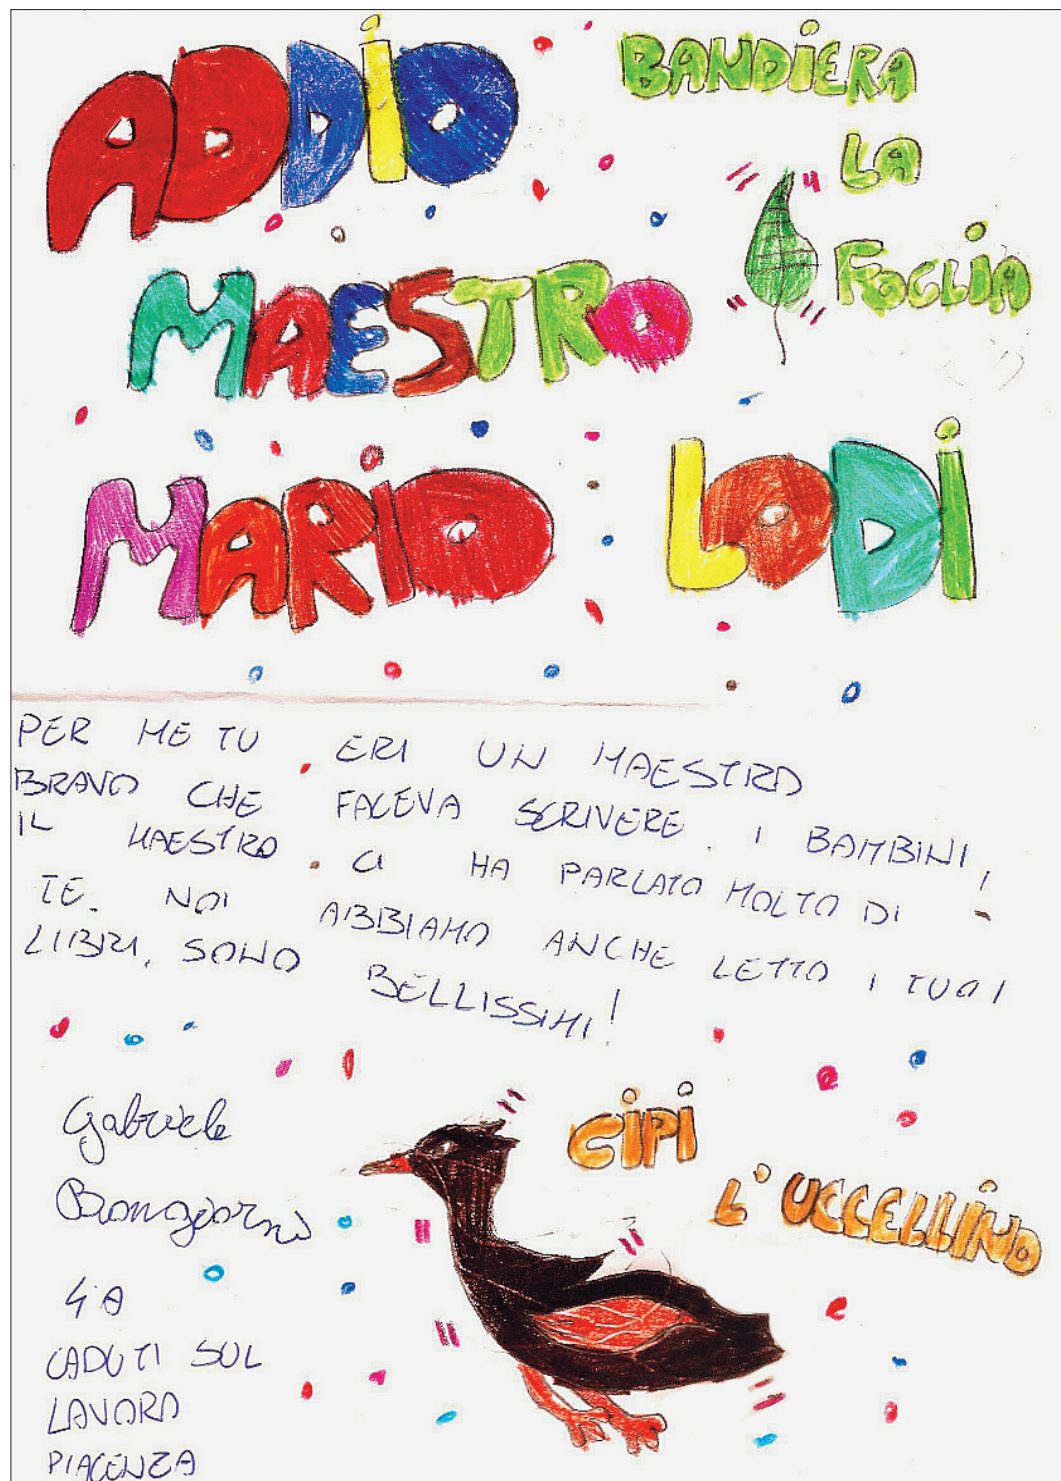 ADDIO
MAESTRO
MARIO LODI
BANDIERA
LA
FOGLIA
PER ME TU ERI UN MAESTRO
BRAVO CHE FACEVA SCRIVERE I BAMBINI,
IL MAESTRO CI HA PARLATO MOLTO DI
TE. NOI ABBIAMO ANCHE LETTO I TUOI
LIBRI, SONO BELLISSIMI!
CIPI
L'UCCELLINO
Gabriele
Bongiorni
4ªA
CADUTI SUL
LAVORO
PIACENZA